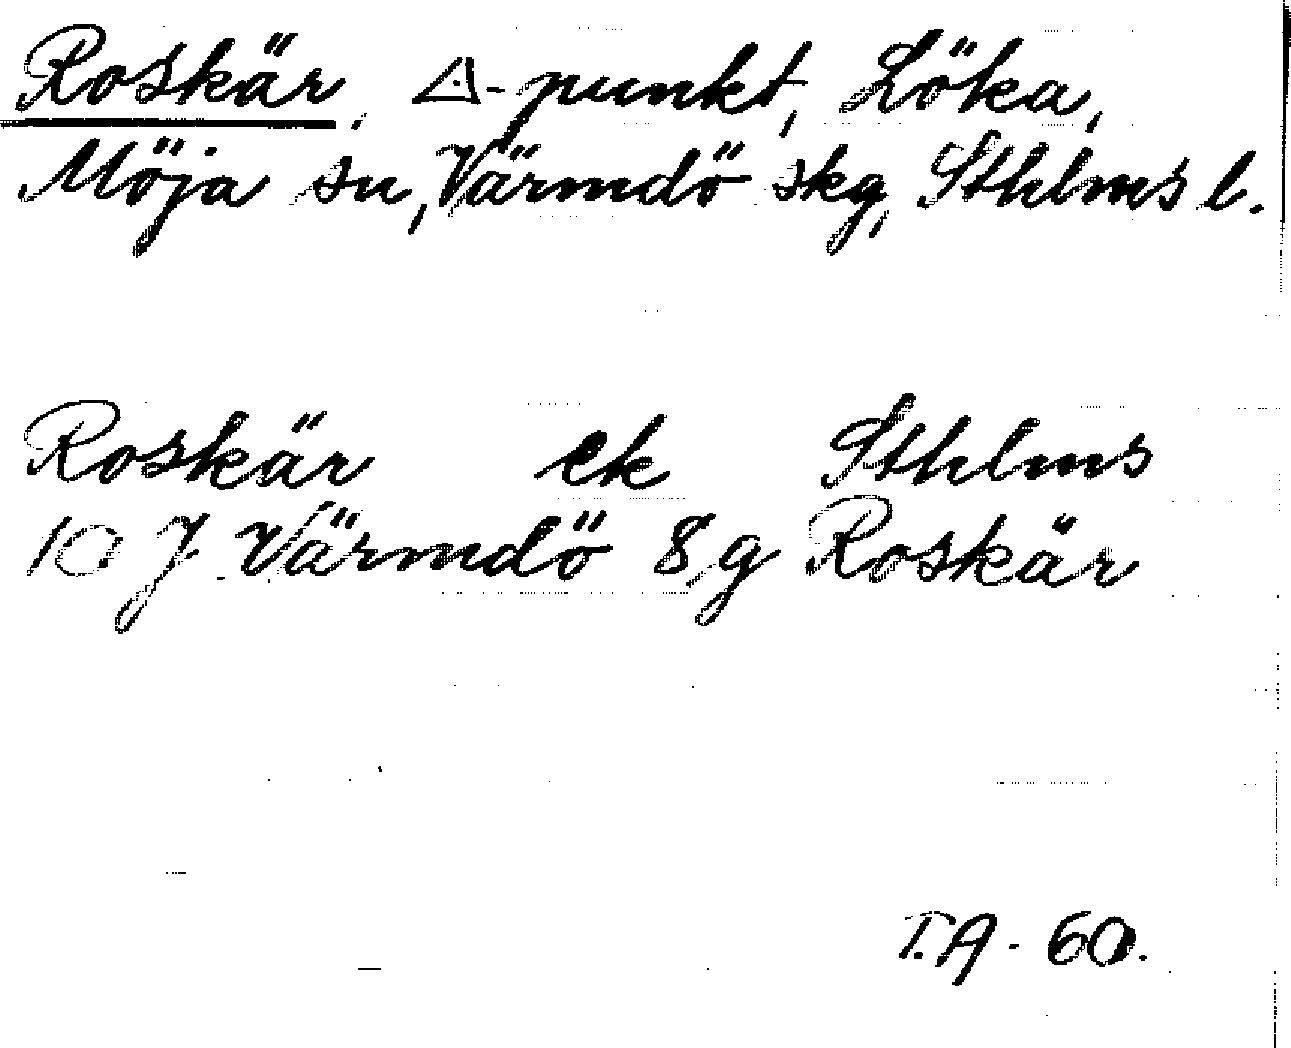 Roskär, ⚠-punkt, Löka,
Möja sn, Värmdö skg, Sthlms l.
Roskär ek Sthlms
10 J Värmdö 8 g Roskär
T.A - 60.